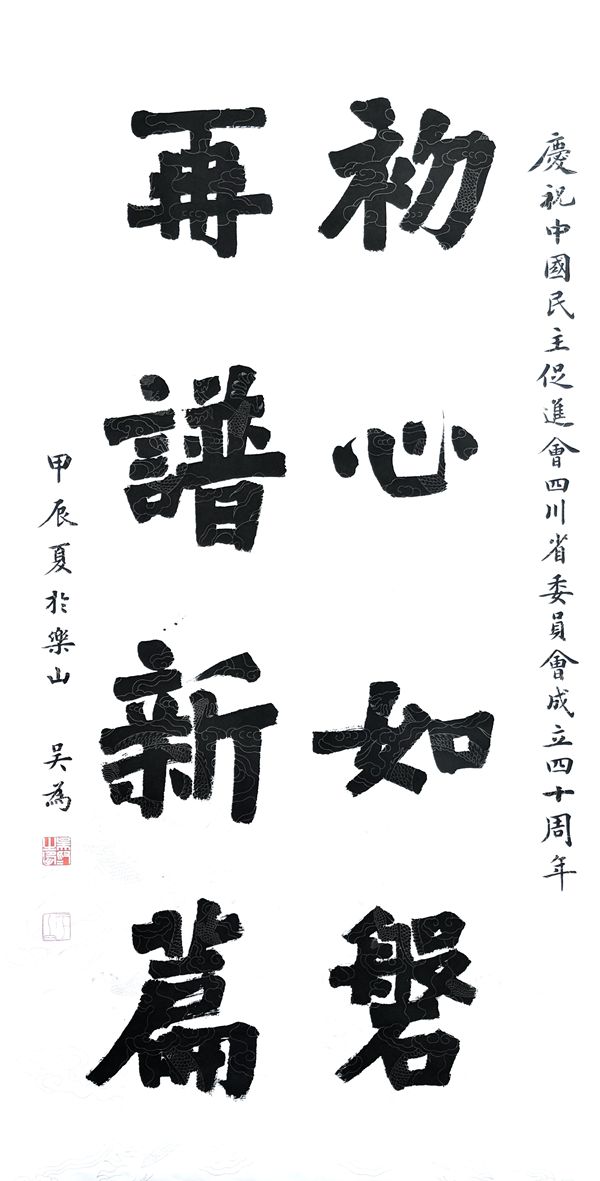 慶祝中國民主促進會四川省委員會成立四十周年
初心如磐
再譜新篇
甲辰夏於樂山 吴為